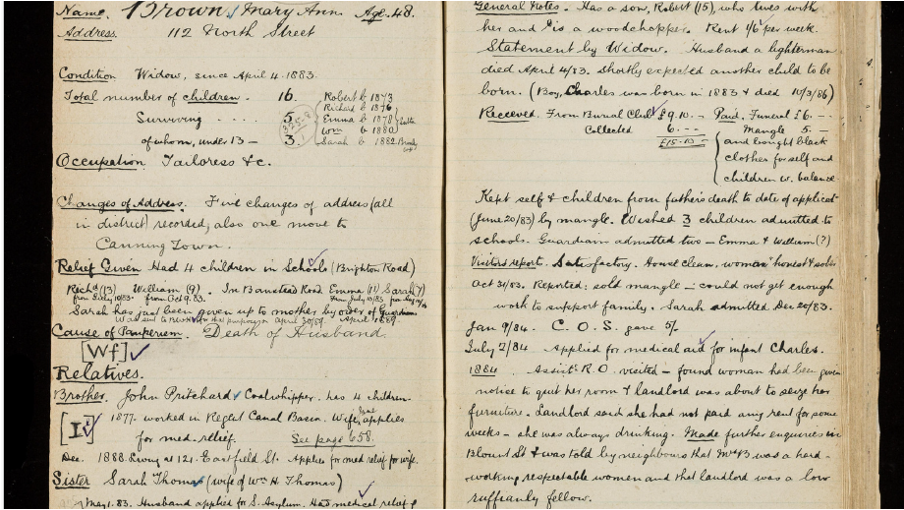 Name. Brown, Mary Ann. Age. 48.
Address. 112 North Street
Condition Widow, since April 4. 1883.
Total number of children. 16.
Robert b 1873
Richard b 1876
Surviving .... 5
Emma b 1878
Wm b 1880
of whom, under 13 — 3
Sarah b 1882
Occupation Tailoress &c.
Changes of Address. Five changes of address (all
in district) recorded; also one move to
Canning Town.
Relief Given Had 4 children in Schools (Brighton Road)
Richd (13) William (9). In Banstead Road Emma (11) Sarah (7)
from July 10/83. from Oct 9. 83. from July 10/83
Sarah has just been given up to mother by order of Guardians
April 1889.
Cause of Pauperism. Death of Husband.
[Wf]
Relatives.
Brother. John Pritchard, Coalwhipper. has 4 children.
1877. worked in Regt Canal Basin. Wife applies
for med. relief. See page 658.
Dec. 1888. Living at 121. Eastfield St. Applies for med relief for wife.
Sister Sarah Thomas (wife of Wm H. Thomas)
May 1. 83. Husband applied for S. Asylum. Had medical relief &
General Notes. Has a son, Robert (15), who lives with
her and is a woodchopper. Rent 1/6 per week.
Statement by Widow. Husband a lighterman
died April 4/83. Shortly expected another child to be
born. (Boy, Charles was born in 1883 & died 10/3/86)
Received. From Burial Club £9.10. — Paid. Funeral £6. —
Collected 6. — — Mangle 5. —
£15.10 — and bought black
clothes for self and
children w. balance
Kept self & children from father's death to date of applicatn
(June 20/83) by mangle. Wished 3 children admitted to
schools. Guardians admitted two — Emma & William (?)
Visitors report. Satisfactory. House clean, woman honest & sober
Oct 31/83. Reported: sold mangle — could not get enough
work to support family. Sarah admitted Dec 20/83.
Jan 9/84. C. O. S. gave 5/-
July 2/84 Applied for medical aid for infant Charles.
1884 Assist. R. O. visited — found woman had been given
notice to quit her room & landlord was about to seize her
furniture. Landlord said she had not paid any rent for some
weeks — she was always drinking. Made further enquiries in
Blount St & was told by neighbours that Mrs B was a hard-
working respectable women and that landlord was a low
ruffianly fellow.